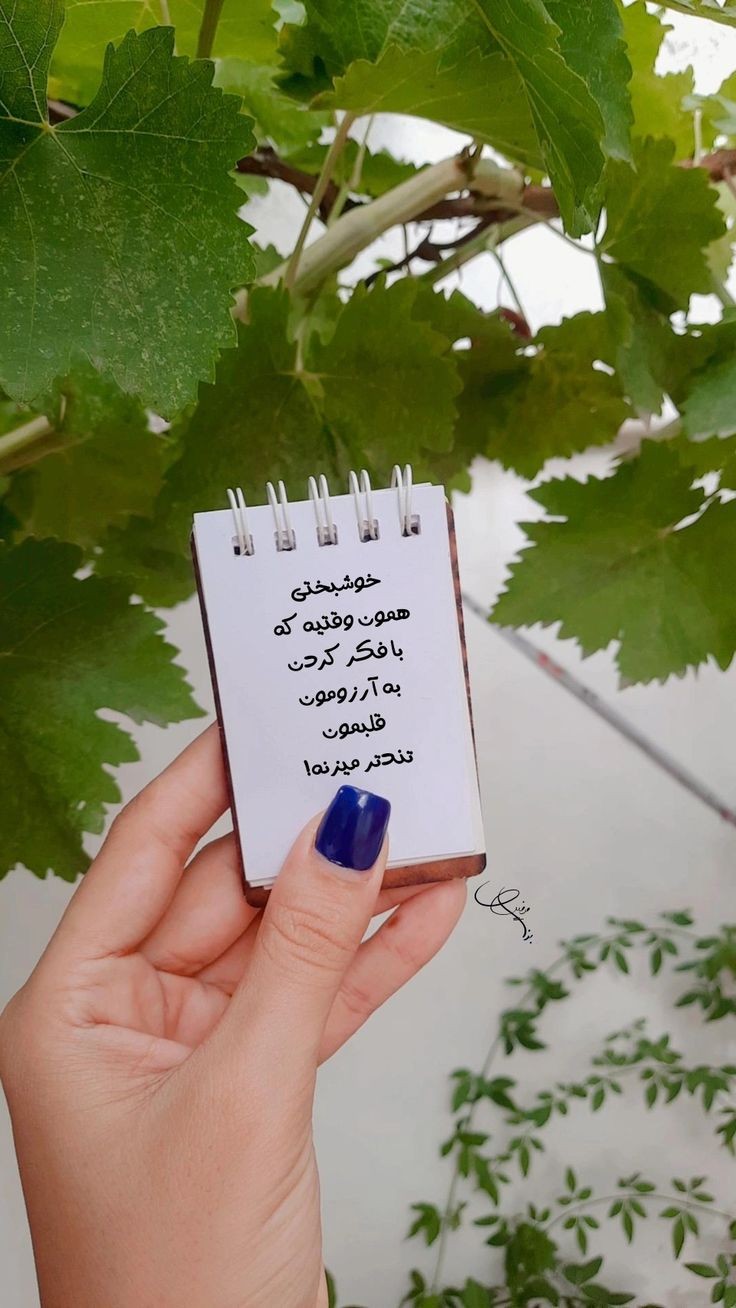 خوشبختی
همون وقتیه که
با فکر کردن
به آرزومون
قلبمون
تندتر میزنه!